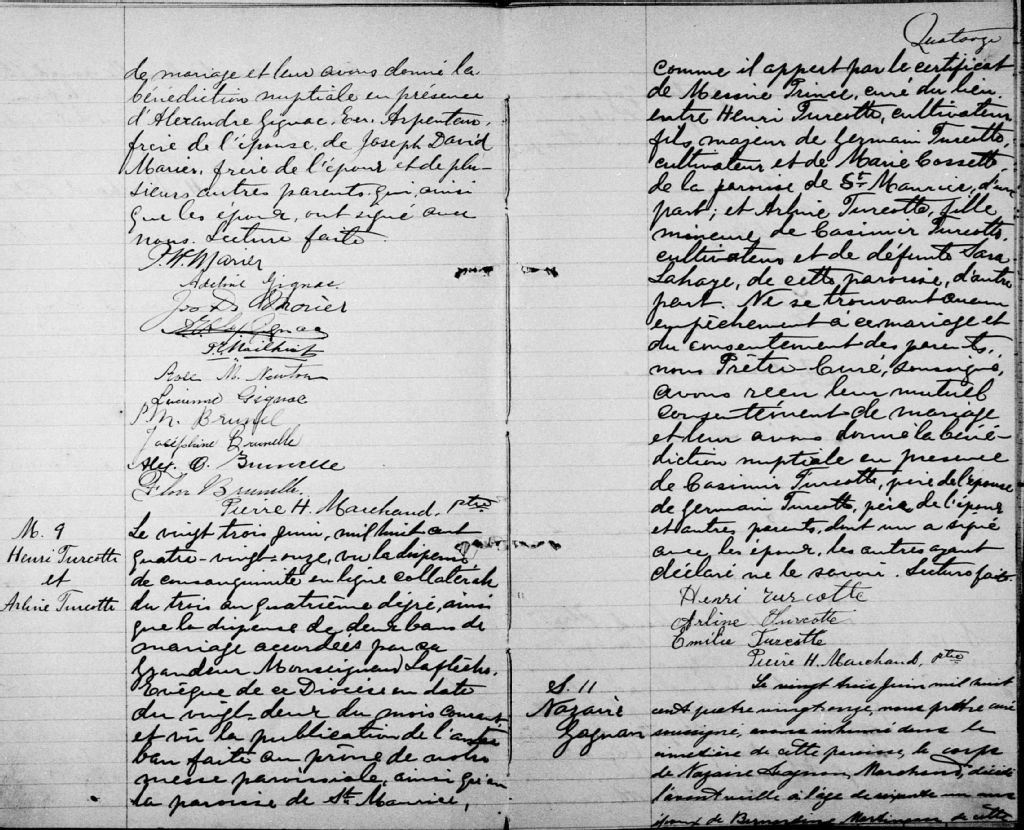 de mariage et leur avons donné la
bénédiction nuptiale en présence
d'Alexandre Gignac, Ecr. Arpenteur,
frère de l'épouse, de Joseph David
Marier, frère de l'époux et de plu-
sieurs autres parents qui, ainsi
que les époux, ont signé avec
nous. Lecture faite.
P. W. Marier
Adeline Gignac
Jos D. Marier
Gignac
Rose M. Newton
Lucienne Gignac
P. M. Brunel
Joséphine Brunelle
Alex. O. Brunelle
Flor Brunelle.
Pierre H. Marchand, ptre
M. 9
Henri Turcotte
et
Arline Turcotte
Le vingt trois Juin, mil huit cent
quatre-vingt-onze, vu la dispense
de consanguinité en ligne collatérale
du trois au quatrième dégré, ainsi
que la dispense de deux bans de
mariage accordées par sa
Grandeur Monseigneur Laflèche,
Evêque de ce Diocèse en date
du vingt-deux du mois courant
et vû la publication de l'autre
ban faite au prône de notre
messe paroissiale, ainsi qu'en
la paroisse de St Maurice,
Quatorze
comme il appert par le certificat
de Messire Prince, curé du lieu,
entre Henri Turcotte, cultivateur,
fils majeur de Germain Turcotte,
cultivateur et de Marie Cossette
de la paroisse de St Maurice, d'une
part; et Arline Turcotte, fille
mineure de Casimir Turcotte,
cultivateur et de défunte Sara
Lahaye, de cette paroisse, d'autre
part. Ne se trouvant aucun
empêchement à ce mariage et
du consentement des parents,
nous Prêtre Curé, soussigné,
avons reçu leur mutuel
consentement de mariage
et leur avons donné la béné-
diction nuptiale en présence
de Casimir Turcotte, père de l'épouse
de Germain Turcotte, père de l'époux
et autres parents, dont un a signé
avec les époux, les autres ayant
déclaré ne le savoir. Lecture faite.
Henri Turcotte
Arline Turcotte
Emilie Turcotte
Pierre H. Marchand, ptre
S. 11
Nazaire
Gagnon
Le vingt trois Juin mil huit
cent quatre vingt onze, nous prêtre curé
soussigné, avons inhumé dans le
cimetière de cette paroisse, le corps
de Nazaire Gagnon, Marchand, décédé
l'avant veille à l'âge de soixante un ans
époux de Bernardine de cette